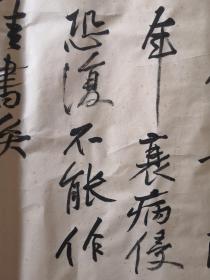 年衰病侵
恐复不能作
書矣